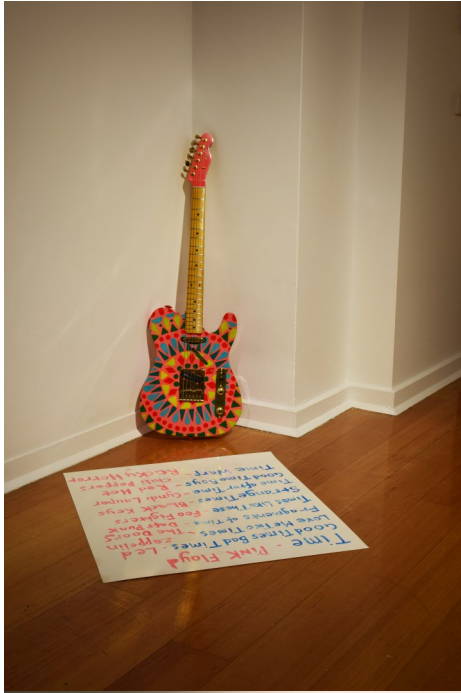 Time - Pink Floyd
Good Times Bad Times - Led Zeppelin
Love Me Two Times - The Doors
Fragments of Time - Daft Punk
Times Like These - Foo Fighters
Strange Times - Black Keys
Time After Time - Cyndi Lauper
Good Time Boys - Red Hot Chili Peppers
Time Warp - Rocky Horror